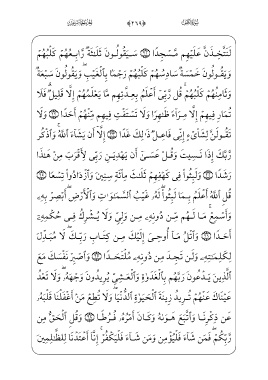 لَنَتَّخِذَنَّ عَلَيْهِم مَّسْجِدًا ﴿٢١﴾ سَيَقُولُونَ ثَلَٰثَةٌ رَّابِعُهُمْ كَلْبُهُمْ
وَيَقُولُونَ خَمْسَةٌ سَادِسُهُمْ كَلْبُهُمْ رَجْمًۢا بِٱلْغَيْبِ ۖ وَيَقُولُونَ سَبْعَةٌ
وَثَامِنُهُمْ كَلْبُهُمْ ۚ قُل رَّبِّىٓ أَعْلَمُ بِعِدَّتِهِم مَّا يَعْلَمُهُمْ إِلَّا قَلِيلٌ ۗ فَلَا
تُمَارِ فِيهِمْ إِلَّا مِرَآءً ظَٰهِرًا وَلَا تَسْتَفْتِ فِيهِم مِّنْهُمْ أَحَدًا ﴿٢٢﴾ وَلَا
تَقُولَنَّ لِشَا۟ىْءٍ إِنِّى فَاعِلٌ ذَٰلِكَ غَدًا ﴿٢٣﴾ إِلَّآ أَن يَشَآءَ ٱللَّهُ ۚ وَٱذْكُر
رَّبَّكَ إِذَا نَسِيتَ وَقُلْ عَسَىٰٓ أَن يَهْدِيَنِ رَبِّى لِأَقْرَبَ مِنْ هَٰذَا
رَشَدًا ﴿٢٤﴾ وَلَبِثُوا۟ فِى كَهْفِهِمْ ثَلَٰثَ مِا۟ئَةٍ سِنِينَ وَٱزْدَادُوا۟ تِسْعًا ﴿٢٥﴾
قُلِ ٱللَّهُ أَعْلَمُ بِمَا لَبِثُوا۟ ۖ لَهُۥ غَيْبُ ٱلسَّمَٰوَٰتِ وَٱلْأَرْضِ ۖ أَبْصِرْ بِهِۦ
وَأَسْمِعْ ۚ مَا لَهُم مِّن دُونِهِۦ مِن وَلِىٍّ وَلَا يُشْرِكُ فِى حُكْمِهِۦٓ
أَحَدًا ﴿٢٦﴾ وَٱتْلُ مَآ أُوحِىَ إِلَيْكَ مِن كِتَابِ رَبِّكَ ۖ لَا مُبَدِّلَ
لِكَلِمَٰتِهِۦ وَلَن تَجِدَ مِن دُونِهِۦ مُلْتَحَدًا ﴿٢٧﴾ وَٱصْبِرْ نَفْسَكَ مَعَ
ٱلَّذِينَ يَدْعُونَ رَبَّهُم بِٱلْغَدَوٰةِ وَٱلْعَشِىِّ يُرِيدُونَ وَجْهَهُۥ ۖ وَلَا تَعْدُ
عَيْنَاكَ عَنْهُمْ تُرِيدُ زِينَةَ ٱلْحَيَوٰةِ ٱلدُّنْيَا ۖ وَلَا تُطِعْ مَنْ أَغْفَلْنَا قَلْبَهُۥ
عَن ذِكْرِنَا وَٱتَّبَعَ هَوَىٰهُ وَكَانَ أَمْرُهُۥ فُرُطًا ﴿٢٨﴾ وَقُلِ ٱلْحَقُّ مِن
رَّبِّكُمْ ۖ فَمَن شَآءَ فَلْيُؤْمِن وَمَن شَآءَ فَلْيَكْفُرْ ۚ إِنَّآ أَعْتَدْنَا لِلظَّٰلِمِينَ